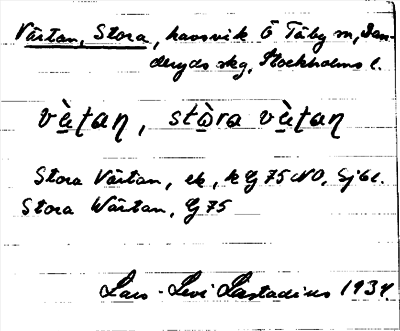 Värtan, Stora, havsvik Ö Täby sn, Dan-
deryds skg, Stockholms l.
vàṭaṇ, stòra vàṭaṇ
Stora Värtan, ek, k G 75 NO, Sjökl.
Stora Wärtan, G 75
Lars-Levi Læstadius 1934.